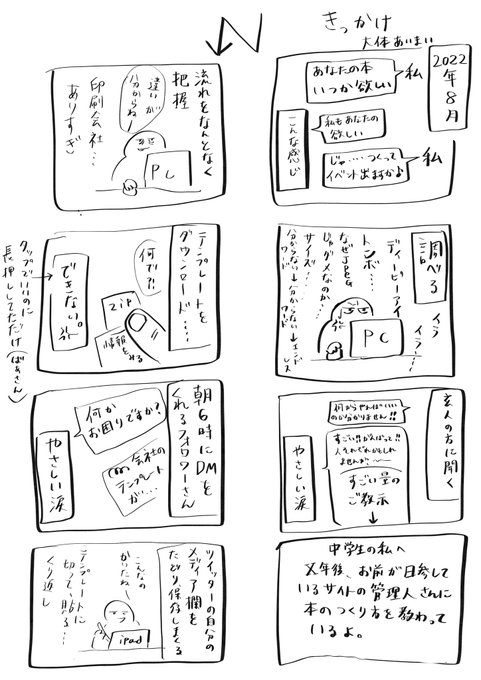 きっかけ
大体あいまい
2022年8月
私
あなたの本
いつか欲しい
私もあなたの
欲しい
こんな感じ
私
じゃ……つくって
イベント出ますかよ
調べる
イライラ…
ディーピーアイ
トンボ…
なぜJPEG
じゃダメなのか…
サイズ…
分からない→分からない→エンドレス
ワード
ワード
PC
玄人の方に聞く
何からやればいい
のか分かりません!!
すごい!!がんばって!!
人それぞれかもしれ
ませんが、〜〜
すごい量の
ご教示
やさしい涙
中学生の私へ
×年後、お前が日参して
いるサイトの管理人さんに
本のつくり方を教わって
いるよ。
流れをなんとなく
把握
違いが
分からねー
印刷会社…
ありすぎ
PC
テンプレートを
ダウンロード…
何で?!
zip
情報を見る
できない。
タップでいいのに
長押ししてただけ(ばあさん)
朝6時にDMを
くれるフォロワーさん
何か
お困りですか?
会社の
テンプレート
が…
やさしい涙
ツイッターの自分の
メディア欄を
たどり保存しまくる
こんなの
かいたね
ipad
テンプレートに
切って貼る…
くり返し